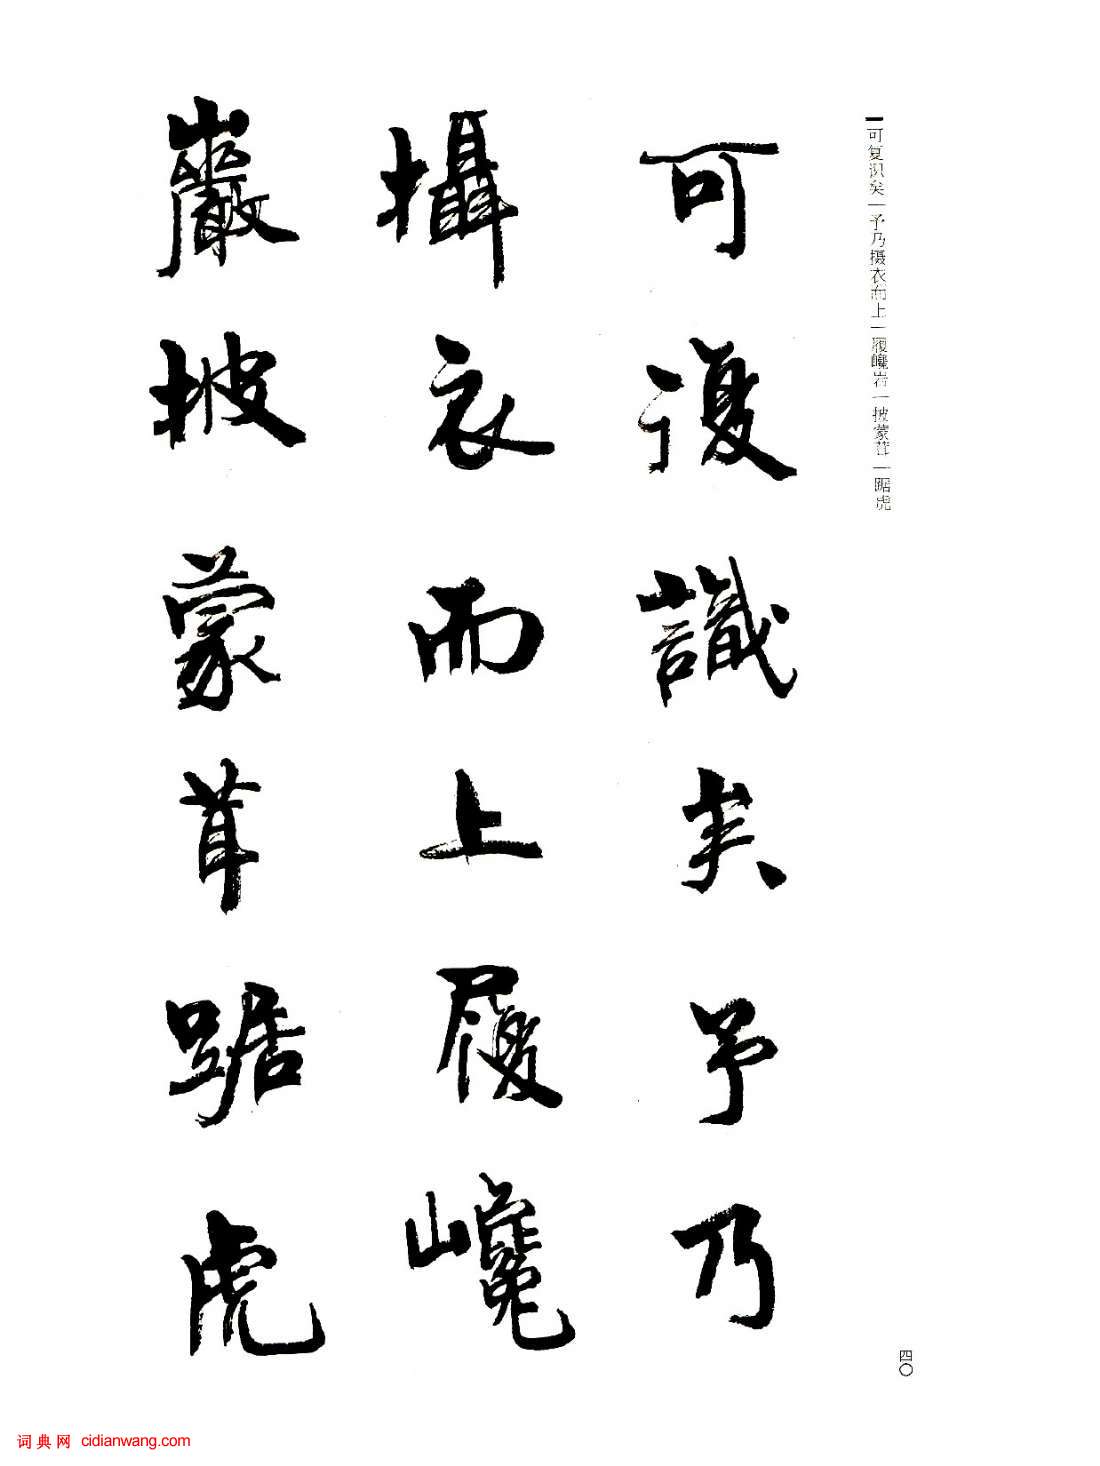 可复识矣—予乃摄衣而上—履巉岩—披蒙茸—踞虎
可復識矣予乃
攝衣而上履巉
巖披蒙茸踞虎
四〇
词典网 cidianwang.com